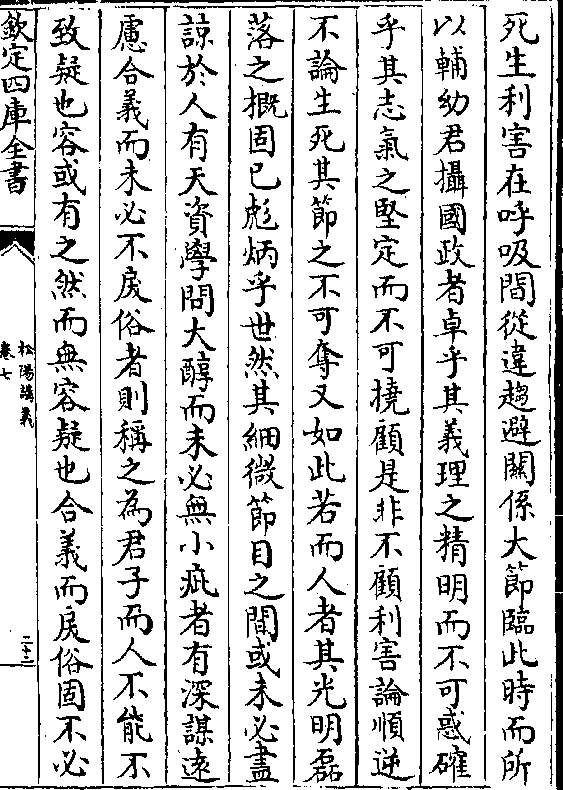 死生利害在呼吸間從違趨避關係大節臨此時而所
以輔幼君攝國政者卓乎其義理之精明而不可惑確
乎其志氣之堅定而不可撓顧是非不顧利害論順逆
不論生死其節之不可奪又如此若而人者其光明磊
落之概固已彪炳乎世然其細微節目之間或未必盡
諒於人有天資學問大醇而未必無小疵者有深謀遠
慮合義而未必不戾俗者則稱之為君子而人不能不
致疑也容或有之然而無容疑也合義而戾俗固不必
欽定四庫全書
松陽講義
卷七
二十二